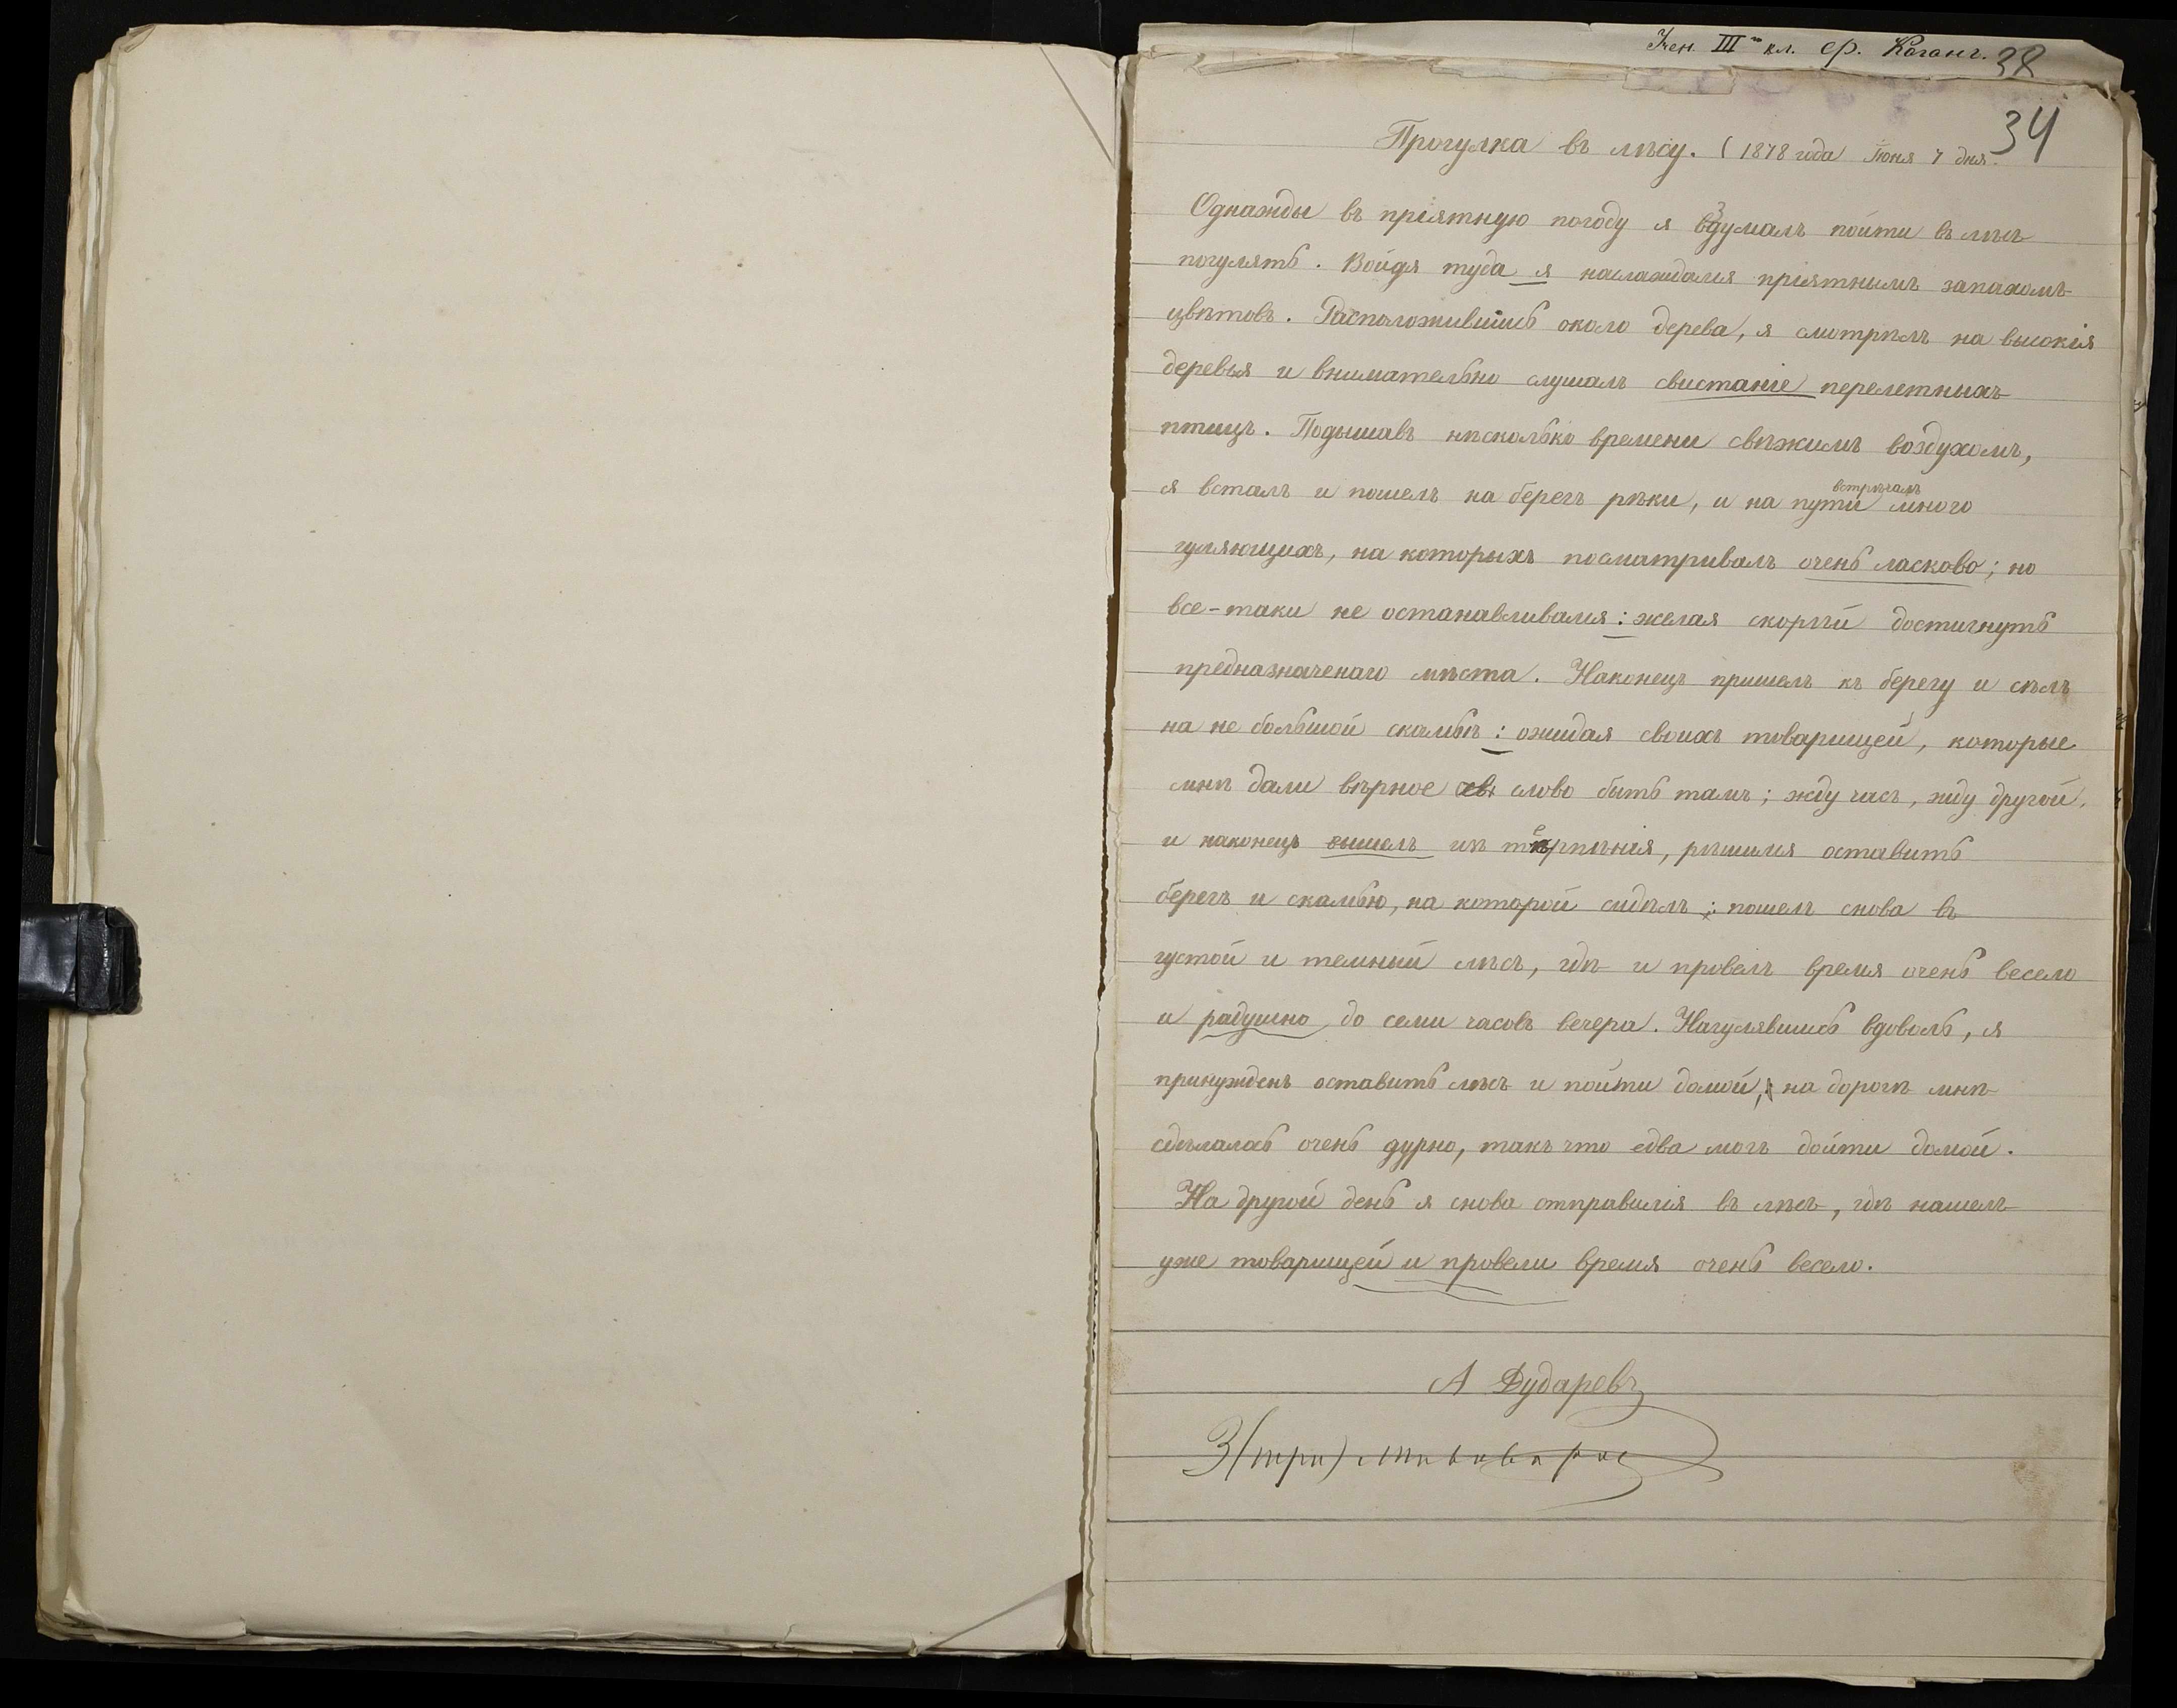 Учен. III кл. ер. Коганъ.
38
34
Прогулка въ лѣсу. (1878 года Іюня 7 дня.
Однажды въ пріятную погоду я вздумалъ пойти въ лѣсъ
погулять. Войдя туда я наслаждался пріятнымъ запахомъ
цвѣтовъ. Расположившись около дерева, я смотрѣлъ на высокія
деревья и внимательно слушалъ свистаніе перелетныхъ
птицъ. Подышавъ нѣсколько времени свѣжимъ воздухомъ,
я всталъ и пошелъ на берегъ рѣки, и на пути встрѣчалъ много
гуляющихъ, на которыхъ посматривалъ очень ласково; но
все-таки не останавливался: желая скорѣй достигнуть
предназначенаго мѣста. Наконецъ пришелъ къ берегу и сѣлъ
на не большой скамьѣ: ожидая своихъ товарищей, которые
мнѣ дали вѣрное слово быть тамъ; жду часъ, жду другой,
и наконецъ вышелъ изъ терпѣнія, рѣшился оставить
берегъ и скамью, на которой сидѣлъ; пошелъ снова въ
густой и темный лѣсъ, гдѣ и провелъ время очень весело
и радушно до семи часовъ вечера. Нагулявшись вдоволь, я
принужденъ оставить лѣсъ и пойти домой, на дорогѣ мнѣ
сдѣлалась очень дурно, такъ что едва могъ дойти домой.
На другой день я снова отправился въ лѣсъ, гдѣ нашелъ
уже товарищей и провели время очень весело.
А Дударевъ
3 (три)